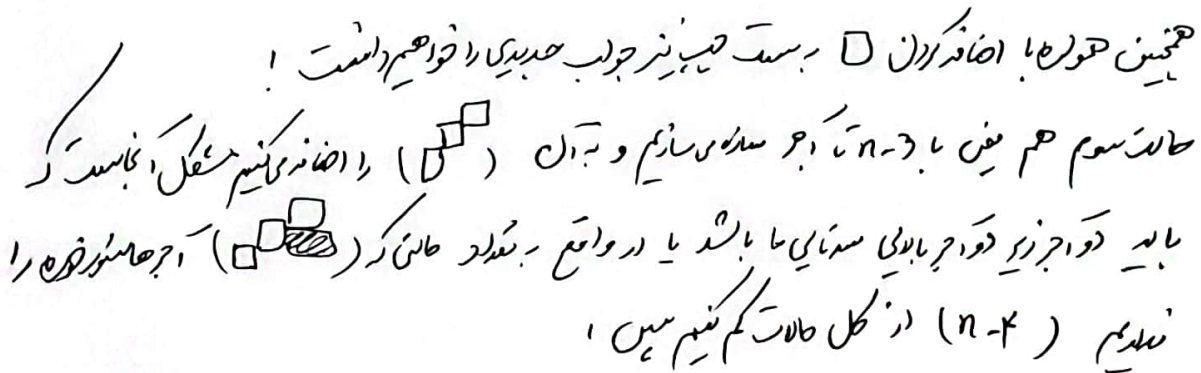 همچنین همواره با اضافه کردن □ به سمت چپ نیز جواب جدیدی را خواهیم داشت !
حالت سوم هم یعنی با n-3 تا آجر سازه می سازیم و به آن ( ) را اضافه می کنیم مشکل آنجاست که
باید دو آجر زیر دو آجر بالایی سه تایی ما باشد یا در واقع به تعداد حالتی که ( ) آجر هاشور خورده را
نداریم (n-4) از کل حالات کم کنیم پس ،